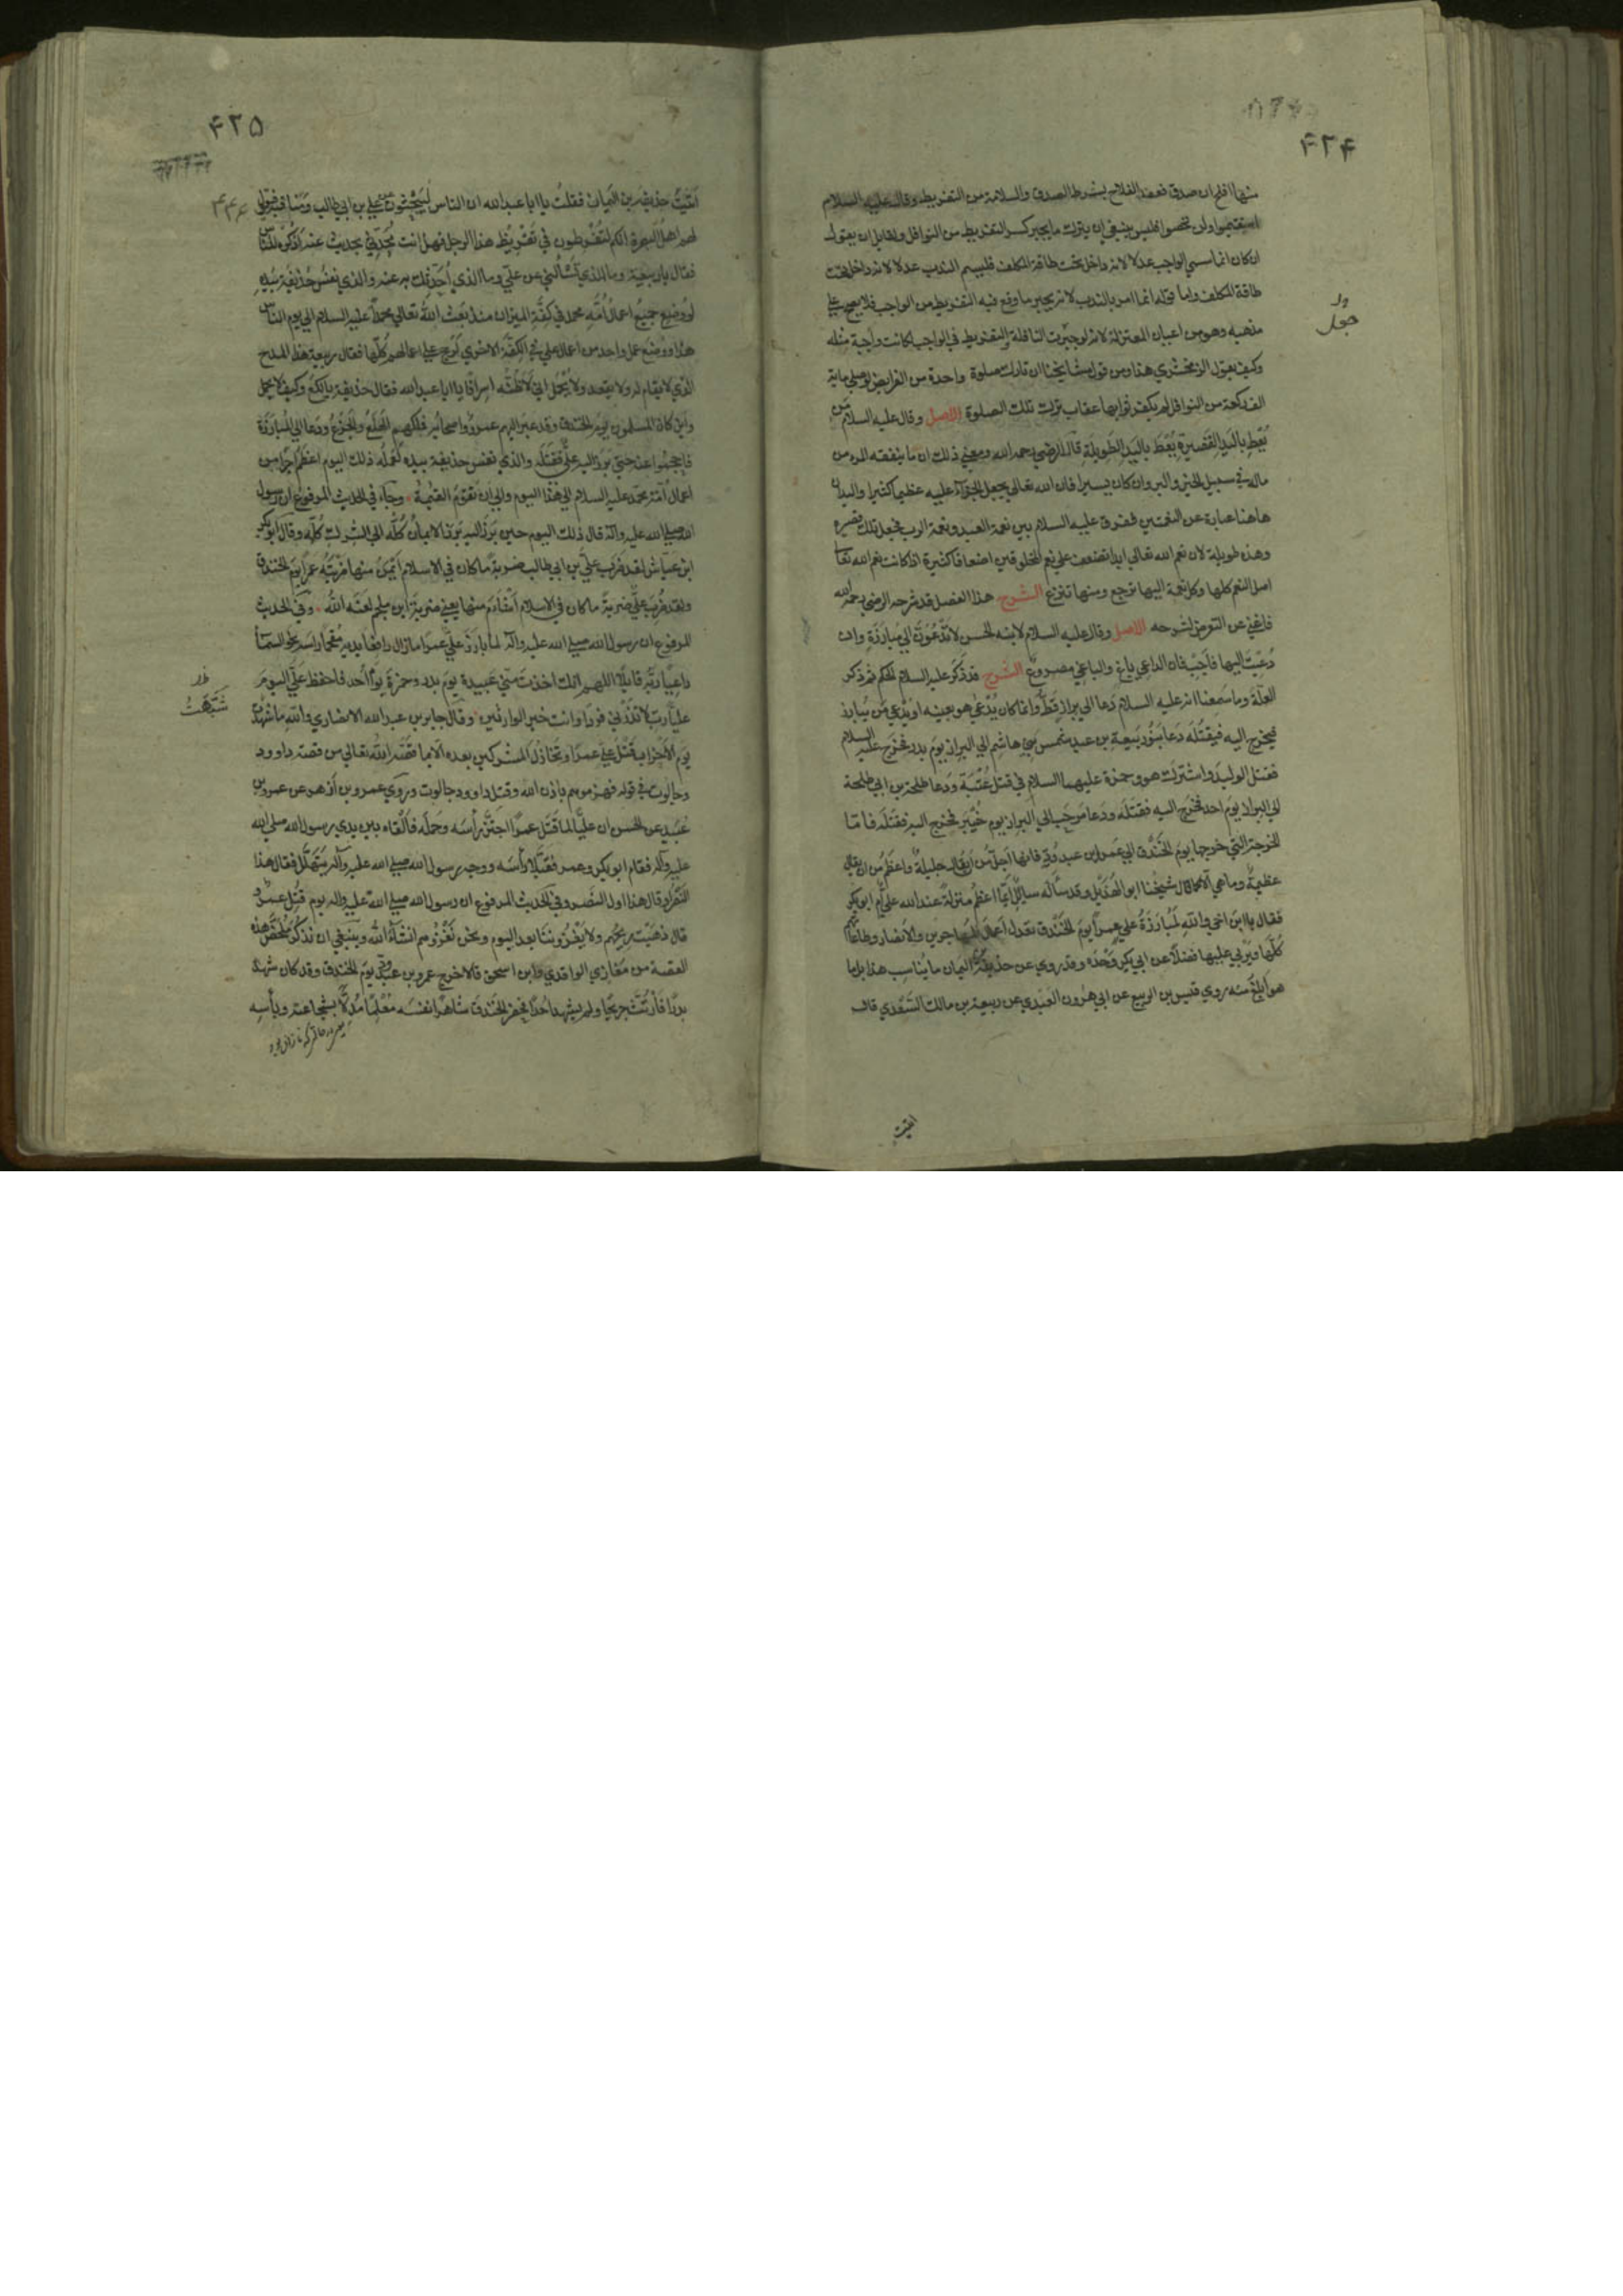 ۴۲۴
منها افلح ان صدق فعقد الفلاح بشرط الصدق والسلامة من التفريط وقال عليه السلام
استقيموا ولن تحصوا فليس ينبغي ان يترك ما يجبر كسر التفريط من النوافل ولقايل ان يقول
ان كان انما سمي الواجب عدلا لانه داخل تحت طاقة المكلف فليسم الندب عدلا لانه داخل تحت
طاقة المكلف واما قوله انما امر بالندب لانه يجبر ما وقع فيه التفريط من الواجب فلا يصح علي
مذهبه وهو من اعيان المعتزلة لانه لو جبرت النافلة بالتفريط في الواجب لكانت واجبة مثله
وكيف يقول الزمخشري هذا ومن قول مشايخنا ان تارك صلوة واحدة من الفرايض لو صلي ماية
الف ركعة من النوافل لم يكفر ثوابها عقاب ترك تلك الصلوة الاصل وقال عليه السلام من
يُعْطِ باليَدِ القَصيرةِ يُعْطَ باليَدِ الطَويلةِ قال الرضي رحمه الله ومعني ذلك ان ما ينفقه المرء من
ماله في سبيل الخير والبر وان كان يسيرا فان الله تعالي يجعل الجزاء عليه عظيما كثيرا واليدان
هاهنا عبارة عن النعمتين ففرق عليه السلام بين نعمة العبد ونعمة الرب فجعل تلك قصيرة
وهذه طويلة لان نعم الله تعالي ابدا تضعف علي نعم المخلوقين اضعافا كثيرة اذ كانت نعم الله تعا
اصل النعم كلها وكل نعمة اليها ترجع ومنها تنزع الشرح هذا الفصل قد شرحه الرضي رحمه الله
فاغني عن التعرض لشرحه الاصل وقال عليه السلام لابنه الحسن لا تَدْعُوَنَّ الي مُبارَزَةٍ وان
دُعِيتَ اليها فَاَجِبْ فان الداعي باغٍ والباغي مصروعٌ الشرح قد ذكر عليه السلام الحكم ثم ذكر
العلة وما سَمِعنا انه عليه السلام دَعا الي براز قَطُّ وانما كان يُدْعي هو بعينه او يَدْعي من يُبارز
فيخرج اليه فيقتُلُه دَعا بَنُو رَبيعة بن عبد شمس بَني هاشم الي البراز يومَ بدر فخرج عليه السلام
فقتل الوليد واشترك هو وحمزة عليهما السلام في قتل عُتْبَة ودعا طلحة بن ابي طلحة
الي البراز يومَ احد فخرج اليه فقَتَلَه ودَعا مرحَب الي البراز يوم خَيْبَر فخرج اليه فقتَلَه فامّا
الخرجة التي خرجها يومَ الخَنْدَق الي عَمرو بن عبد وُدّ فانها اَجلُّ من ان يقال جليلةٌ واعظمُ من ان يقال
عظيمةٌ وما هي الا كما قال شيخُنا ابو الهُذَيْل وقد سأله سايلٌ ايّما اعظمُ منزلةً عند الله عليٌّ ام ابو بكر
فقال يا ابنَ اخي والله لَمُبارَزَةُ عليٍّ عمراً يومَ الخَنْدَق تعدل اَعمالَ المهاجرين والانصار وطاعاتهم
كُلَّها وتُربي عليها فضلاً عن ابي بكر وَحْدَه وقد روي عن حذيفة بن اليمان ما يُناسِب هذا بل ما
هو اَبلغُ منه روي قيس بن الربيع عن ابي هرون العَبْدي عن ربيعة بن مالك السَّعْدي قال
اتيتُ
۴۲۵
۴۴۴
اَتَيْتُ حذيفة بن اليمان فقلتُ يا ابا عبدالله ان الناس لَيَتَحَدَّثون عن علي بن ابي طالب ومناقبه فيقول
لهم اهلُ البصرة انكم لتُفْرطون في تَقْريظ هذا الرجل فهل انت مُحَدِّثي بحديث عنه اَذكُره للناس
فقال يا ربيعة وما الذي تَسْأَلُني عن عليّ وما الذي اُحَدّثُك به عنه والذي نفسُ حُذَيفة بيده
لو وُضِع جميعُ اعمال اُمّة محمد في كفّة الميزان منذ بَعَث الله تعالي محمداً عليه السلام الي يوم الناس
هذا ووُضع عمل واحد من اعمال علي في الكفّة الاخري لَرَجَح علي اعمالهم كلّها فقال ربيعة هذا المدح
الذي لا يقام له ولا يقعد ولا يُحمَل اني لَاَظُنُّه اسرافًا يا ابا عبد الله فقال حذيفة يا لُكَع وكيف لا يحمل
واين كان المسلمون يومَ الخندق وقد عبر اليهم عمرو واصحابُه فملكهم الهَلَع والجَزَع ودعا الي المُبارَزَة
فاحجموا عنه حتي برز اليه عليٌّ فقَتَلَه والذي نفس حذيفة بيده لَعَمَلُه ذلك اليوم اعظم اجرا من
اعمال اُمّة محمد عليه السلام الي هذا اليوم والي ان تقوم القيمة وجاء في الحديث المرفوع ان رسول
الله صلي الله عليه وآله قال ذلك اليوم حين بَرَز اليه بَرَز الايمانُ كُلّه الي الشرك كُلّه وقال ابو بكر
ابن عيّاش لقد ضَرَب علي بن ابي طالب ضربةً ما كان في الاسلام اَيمَنُ منها ضَرْبَتُه عَمراً يومَ الخندق
ولقد ضُرِبَ عليٌّ ضربةً ما كان في الاسلام اَشْأَم منها يعني ضربةَ ابن ملجم لعنَه اللهُ وفي الحديث
المرفوع ان رسول الله صلي الله عليه وآله لما بارَزَ عليٌّ عمراً ما زال رافعًا يديه مُقمِحًا رأسه نحو السماء
داعيًا رَبَّه قايلًا اللهم انك اخذتَ منّي عُبيدة يومَ بدر وحمزةَ يومَ اُحد فاحفظ عَلَيَّ اليومَ
عليًّا ربّ لا تَذَرْني فردا وانت خير الوارثين وقال جابر بن عبد الله الانصاري والله ما شبهتُ
يومَ الاَحْزاب قَتْلَ عليٍّ عمراً وتَخاذُلَ المشركين بعده الا بما قصّه اللهُ تعالي من قصة داوود
وجالوت في قوله فهزموهم باذن الله وقتل داوود جالوت وروي عمرو بن ازهر عن عمرو بن
عُبَيد عن الحسن ان عليًّا لما قَتَل عمراً اجتَزَّ رأسَه وحمَله فاَلقاه بين يدي رسول الله صلي الله
عليه وآله فقام ابو بكر وعمر فقبّلا رأسَه ووجه رسول الله صلي الله عليه وآله يَتَهَلَّل فقال هذا
النَّصْر او قال هذا اول النَّصر وفي الحديث المرفوع ان رسول الله صلي الله عليه وآله يوم قُتِل عمرو
قال ذهَبت ريحُهم ولا يَغْزُونَنا بعد اليوم ونحن نَغْزُوهم انشاءَ الله وينبغي ان نَذكُر مُلَخَّص هذه
القصة من مَغازي الواقدي وابن اسحق قالا خرج عمرو بن عبد وُدّ يومَ الخندق وقد كان شهد
بدرًا فَارْتُثَّ جريحًا ولم يشهد اُحُدًا فحضر الخَنْدَق شاهرًا نفسَه مُعْلِمًا مُدِلًّا بشجاعته وبأسِه
شَبَّهْتُ